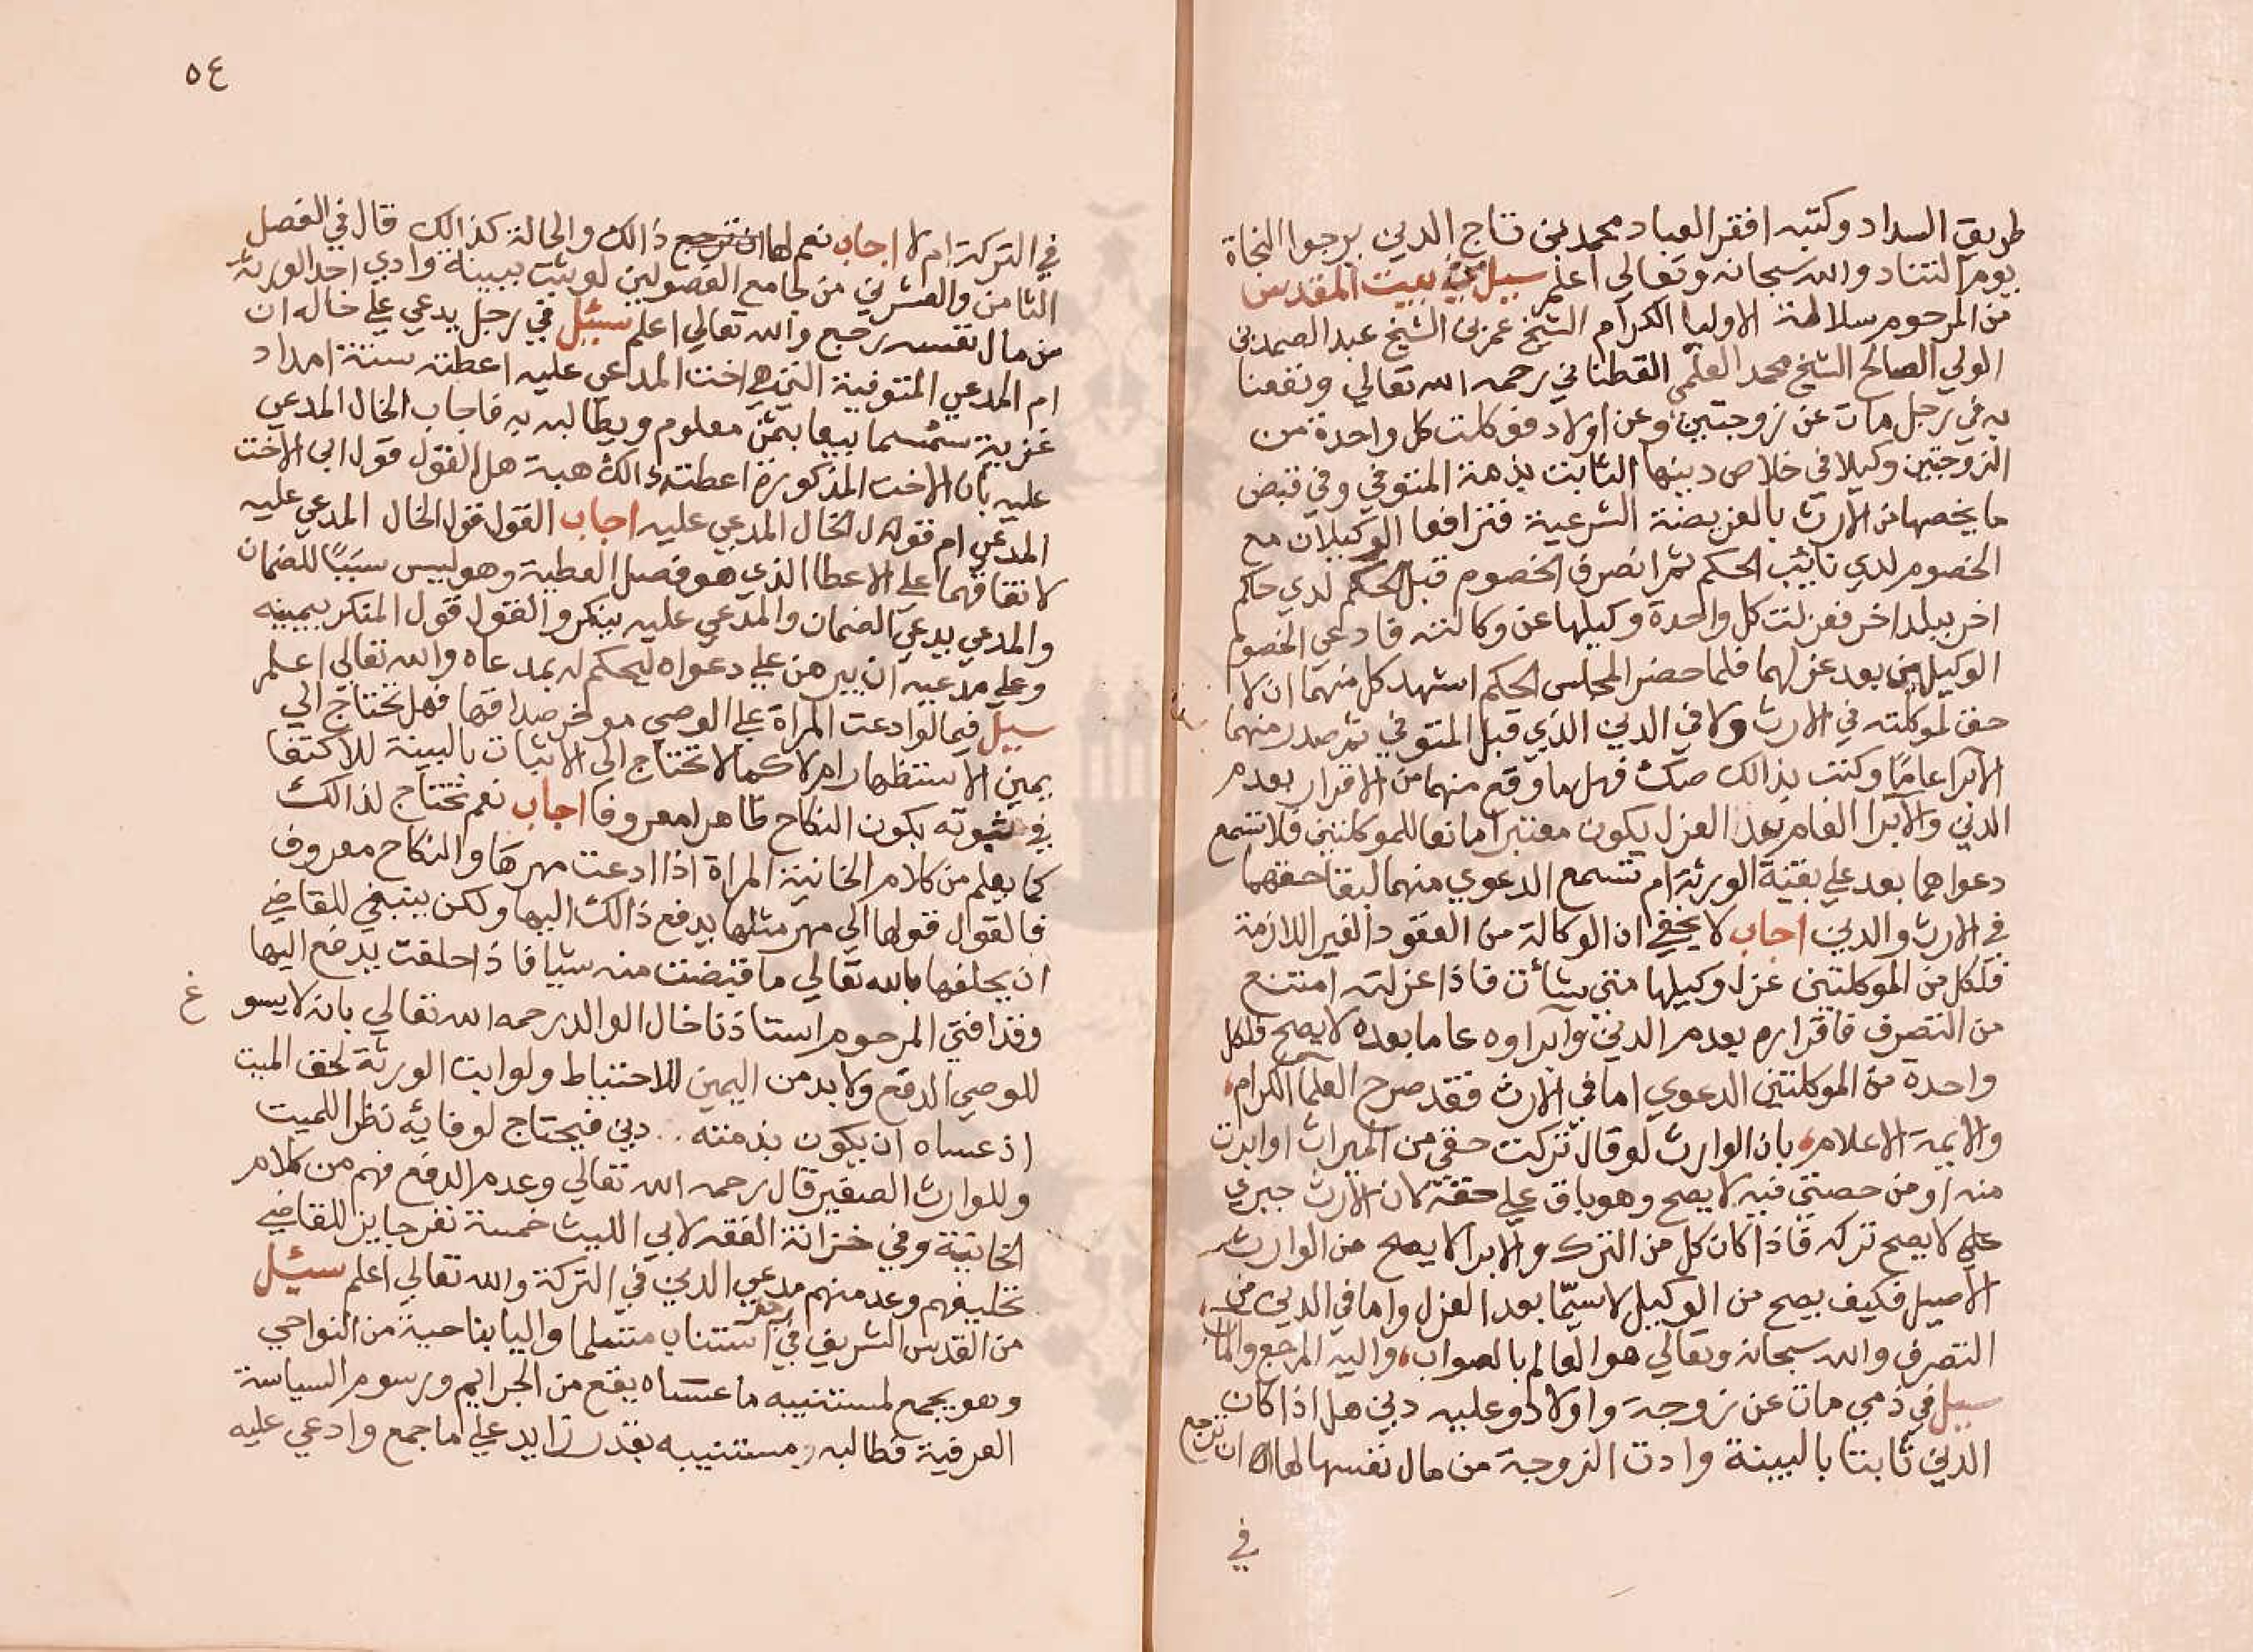 طريق السداد وكتبه افقر العباد محمد بن تاج الدين يرجوا النجاة
يوم التناد والله سبحانه وتعالى اعلم سيل من بيت المقدس
من المرحوم سلالة الاوليا الكرام الشيخ عمر بن الشيخ عبد الصمد بن
الولي الصالح الشيخ محمد العلمي القطناني رحمه الله تعالى ونفعنا
به في رجل مات عن زوجتين وعن اولاد فوكلت كل واحدة من
الزوجتين وكيلا في خلاص دينها الثابت بذمة المتوفي وفي قبض
ما يخصها من الارث بالفريضة الشرعية فترافعا الوكيلان مع
الخصوم لدي نائب الحكم ثم انصرف الخصوم قبل الحكم لدي حاكم
اخر ببلد اخر فعزلت كل واحدة وكيلها عن وكالته فادعي الخصوم
الوكيلين بعد عزلهما فلما حضر المجلس الحكم اشهد كل منهما ان لا
حق لموكلته في الارث ولا في الدين الذي قبل المتوفي ثم صدر منهما
الابرا عاما وكتب بذالك صك فهل ما وقع منهما من الاقرار بعدم
الدين والابرا العام بعد العزل يكون معتبرا مانعا للموكلتين فلا تسمع
دعواهما بعد علي بقية الورثة ام تسمع الدعوي منهما لبقا حقهما
في الارث والدين اجاب لا يخفي ان الوكالة من العقود الغير اللازمة
فلكل من الموكلتين عزل وكيلها متى شأت فاذا عزلته امتنع
من التصرف فاقراره بعدم الدين وابراوه عاما بعده لا يصح فلكل
واحدة من الموكلتين الدعوي اما في الارث فقد صرح العلما الكرام
والايمة الاعلام بان الوارث لو قال تركت حقي من الميراث او ابريت
منه او من حصتي فيه لا يصح وهو باق علي حقه لان الارث جبري
علي لا يصح تركه فاذا كان كل من الترك والابرا لا يصح من الوارث
الاصيل فكيف يصح من الوكيل لا سيما بعد العزل واما في الدين فمن
التصرف والله سبحانه وتعالي هو العالم بالصواب واليه المرجع والمآب
سيل في ذمي مات عن زوجة واولاد وعليه دين هل اذا كان
الدين ثابتا بالبينة وادت الزوجة من مال نفسها لها ان ترجع
في
٥٤
في التركة ام لا اجاب نعم لها ان ترجع ذالك والحالة كذالك قال في الفصل
الثامن والعشرين من جامع الفصولين لو يثبت ببينة وادي احد الورثة
من مال نفسه رجع والله تعالي اعلم سئيل في رجل يدعي علي خاله ان
ام المدعي المتوفية التي هي اخت المدعي عليه اعطته ستة امداد
غزية سمسما بيعا بثمن معلوم ويطالبه به فاجاب الخال المدعي
عليه بان الاخت المذكورة اعطته ذالك هبة هل القول قول ابن الاخت
المدعي ام قول الخال المدعي عليه اجاب القول قول الخال المدعي عليه
لاتفاقهما علي الاعطا الذي هو فصل العطية وهو ليس سببا للضمان
والمدعي يدعي الضمان والمدعي عليه ينكر والقول قول المنكر بيمينه
وعلي مدعيه ان يبرهن علي دعواه ليحكم له بمدعاه والله تعالي اعلم
سيل فيما لو ادعت المراة علي الوصي موخر صداقها فهل تحتاج الي
يمين الاستظهار ام لا كما لا تحتاج الي الاثبات بالبينة للاكتفا
في ثبوته بكون النكاح ظاهرا معروفا اجاب نعم تحتاج لذالك
كما يعلم من كلام الخانية المراة اذا ادعت مهرها والنكاح معروف
فالقول قولها الي مهر مثلها يدفع ذالك اليها ولكن ينبغي للقاضي
ان يحلفها بالله تعالي ما قبضت منه شيا فاذا حلفت يدفع اليها
وقد افتي المرحوم استاذنا خال الوالد رحمه الله تعالي بانه لا يسو
غ
للوصي الدفع ولا بد من اليمين للاحتياط ولو ابت الورثة لحق الميت
اذ عساه ان يكون بذمته دين فيحتاج لوفائه نظرا للميت
وللوارث الصغير قال رحمه الله تعالي وعدم الدفع فهم من كلام
الخانية وفي خزانة الفقه لابي الليث خمسة نفر جايز للقاضي
تحليفهم وعد منهم مدعي الدين في التركة والله تعالي اعلم سئيل
من القدس الشريف في رجل استناب متسلما واليا بناحية من النواحي
وهو يجمع لمستنيبه ما عساه يقع من الجرايم ورسوم السياسة
العرفية فطالبه مستنيبه بقدر زايد علي ما جمع وادعي عليه